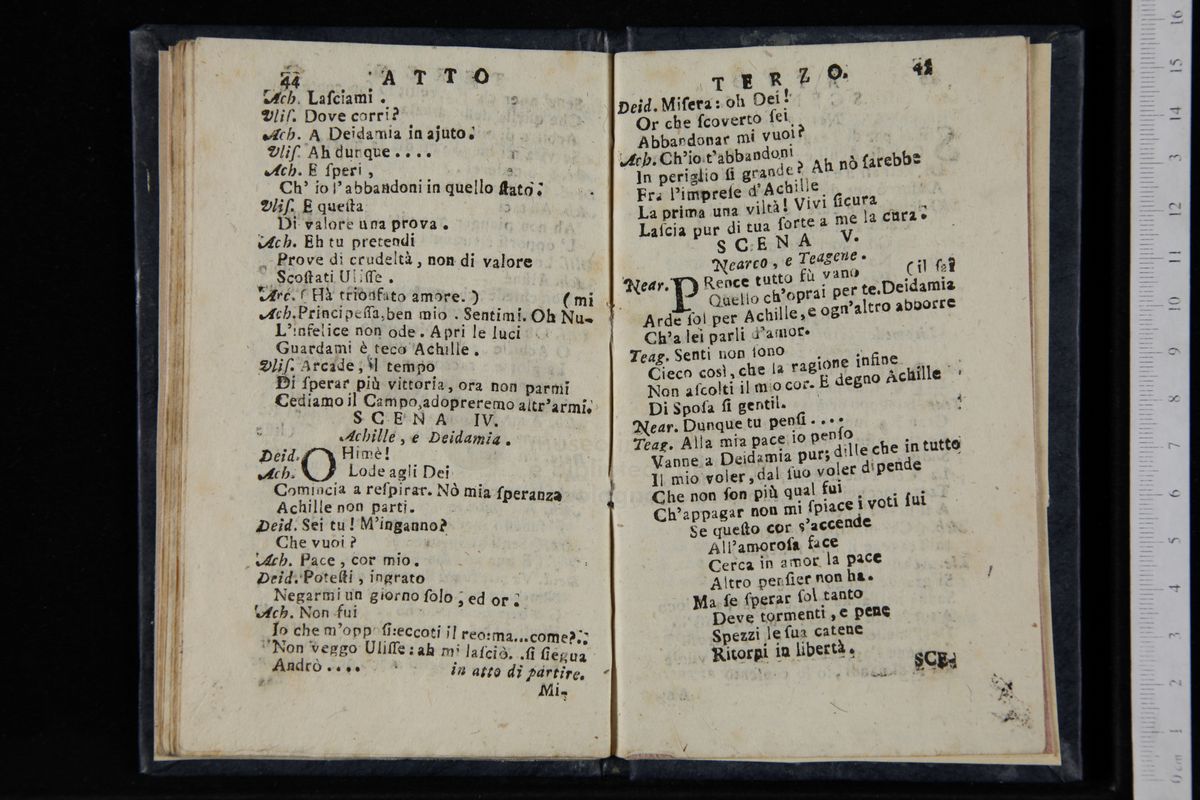 44 ATTO
Ach. Laſciami.
Vliſ. Dove corri?
Ach. A Deidamia in ajuto.
Vliſ. Ah dunque....
Ach. E ſperi,
Ch' io l'abbandoni in quello ſtato.
Vliſ. E queſta
Di valore una prova.
Ach. Eh tu pretendi
Prove di crudeltà, non di valore
Scoſtati Uliſſe.
Arc. (Hà trionfato amore.) (mi
Ach. Principeſſa, ben mio. Sentimi. Oh Nu-
L'infelice non ode. Apri le luci
Guardami è teco Achille.
Vliſ. Arcade, il tempo
Di ſperar più vittoria, ora non parmi
Cediamo il Campo, adopreremo altr'armi.
SCENA IV.
Achille, e Deidamia.
Deid. OHimè!
Ach. Lode agli Dei
Comincia a reſpirar. Nò mia ſperanza
Achille non parti.
Deid. Sei tu! M'inganno?
Che vuoi?
Ach. Pace, cor mio.
Deid. Poteſti, ingrato
Negarmi un giorno ſolo, ed or.
Ach. Non fui
Io che m'oppoſi: eccoti il reo: ma...come?..
Non veggo Uliſſe: ah mi laſciò. .ſi ſiegua
Andrò.... in atto di partire.
Mi-
TERZO. 45
Deid. Miſera: oh Dei!
Or che ſcoverto ſei
Abbandonar mi vuoi?
Ach. Ch'io t'abbandoni
In periglio ſi grande? Ah nò ſarebbe
Fra l'impreſe d'Achille
La prima una viltà! Vivi ſicura
Laſcia pur di tua ſorte a me la cura.
SCENA V.
Nearco, e Teagene.
(il ſai
Near. PRence tutto fù vano
Quello ch'oprai per te. Deidamia
Arde ſol per Achille, e ogn'altro abborre
Ch'a lei parli d'amor.
Teag. Senti non ſono
Cieco così, che la ragione infine
Non aſcolti il mio cor. E degno Achille
Di Spoſa ſi gentil.
Near. Dunque tu penſi....
Teag. Alla mia pace io penſo
Vanne a Deidamia pur; dille che in tutto
Il mio voler, dal ſuo voler dipende
Che non ſon più qual fui
Ch'appagar non mi ſpiace i voti ſui
Se queſto cor s'accende
All'amoroſa face
Cerca in amor la pace
Altro penſier non ha.
Ma ſe ſperar ſol tanto
Deve tormenti, e pene
Spezzi le ſua catene
Ritorni in libertà.
SCE-